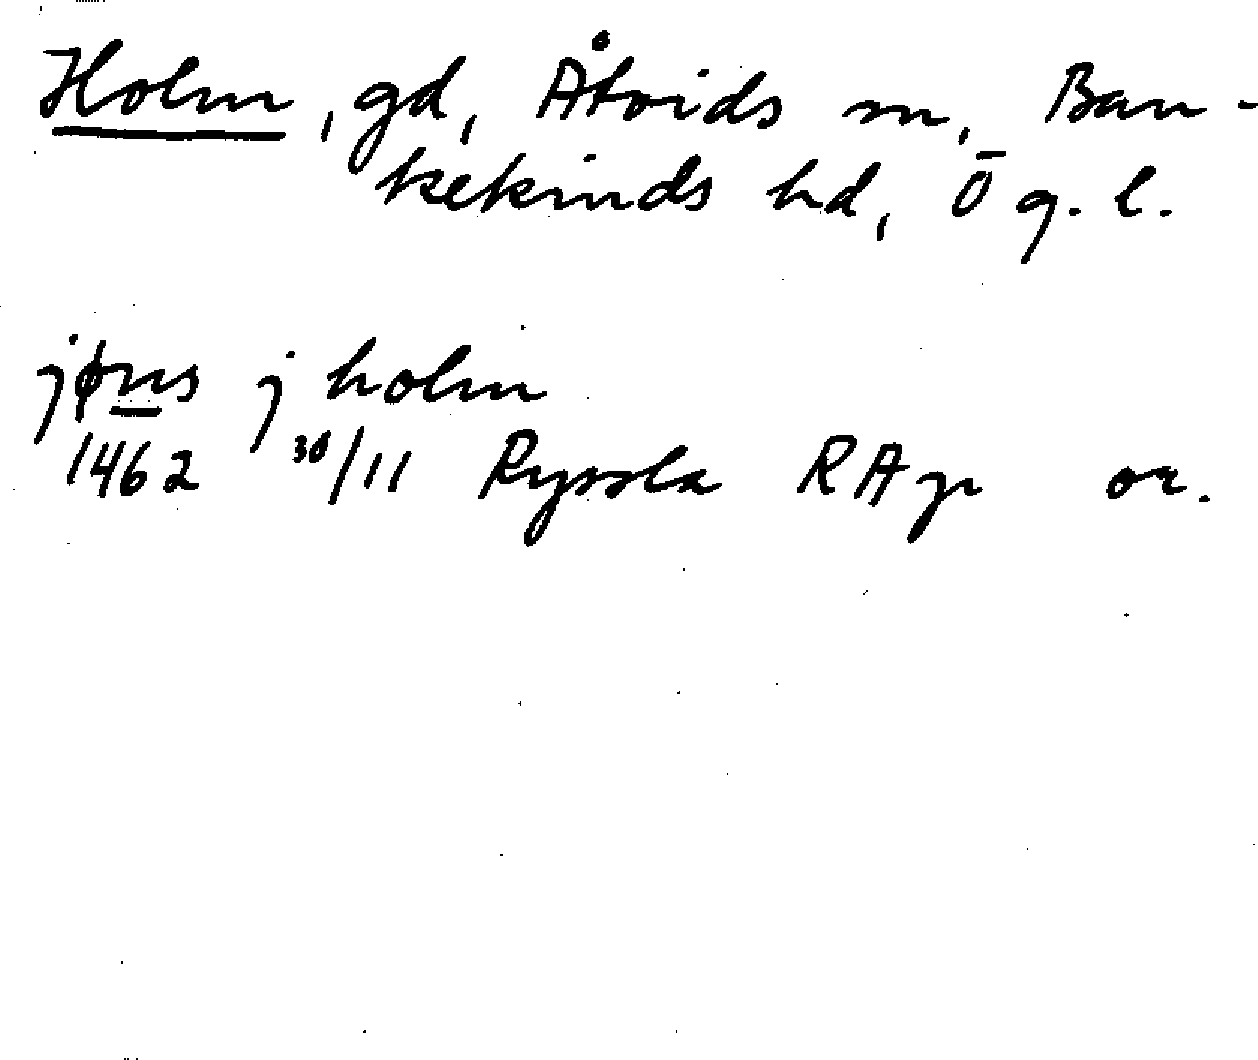 Holm, gd, Åtvids sn, Ban-
kekinds hd, Ög. l.
jøns j holm
1462 30/11 Ryssla RAp or.